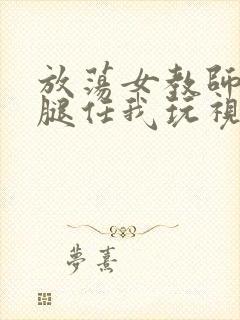 放蕩女教師
腿任我玩視
夢熹